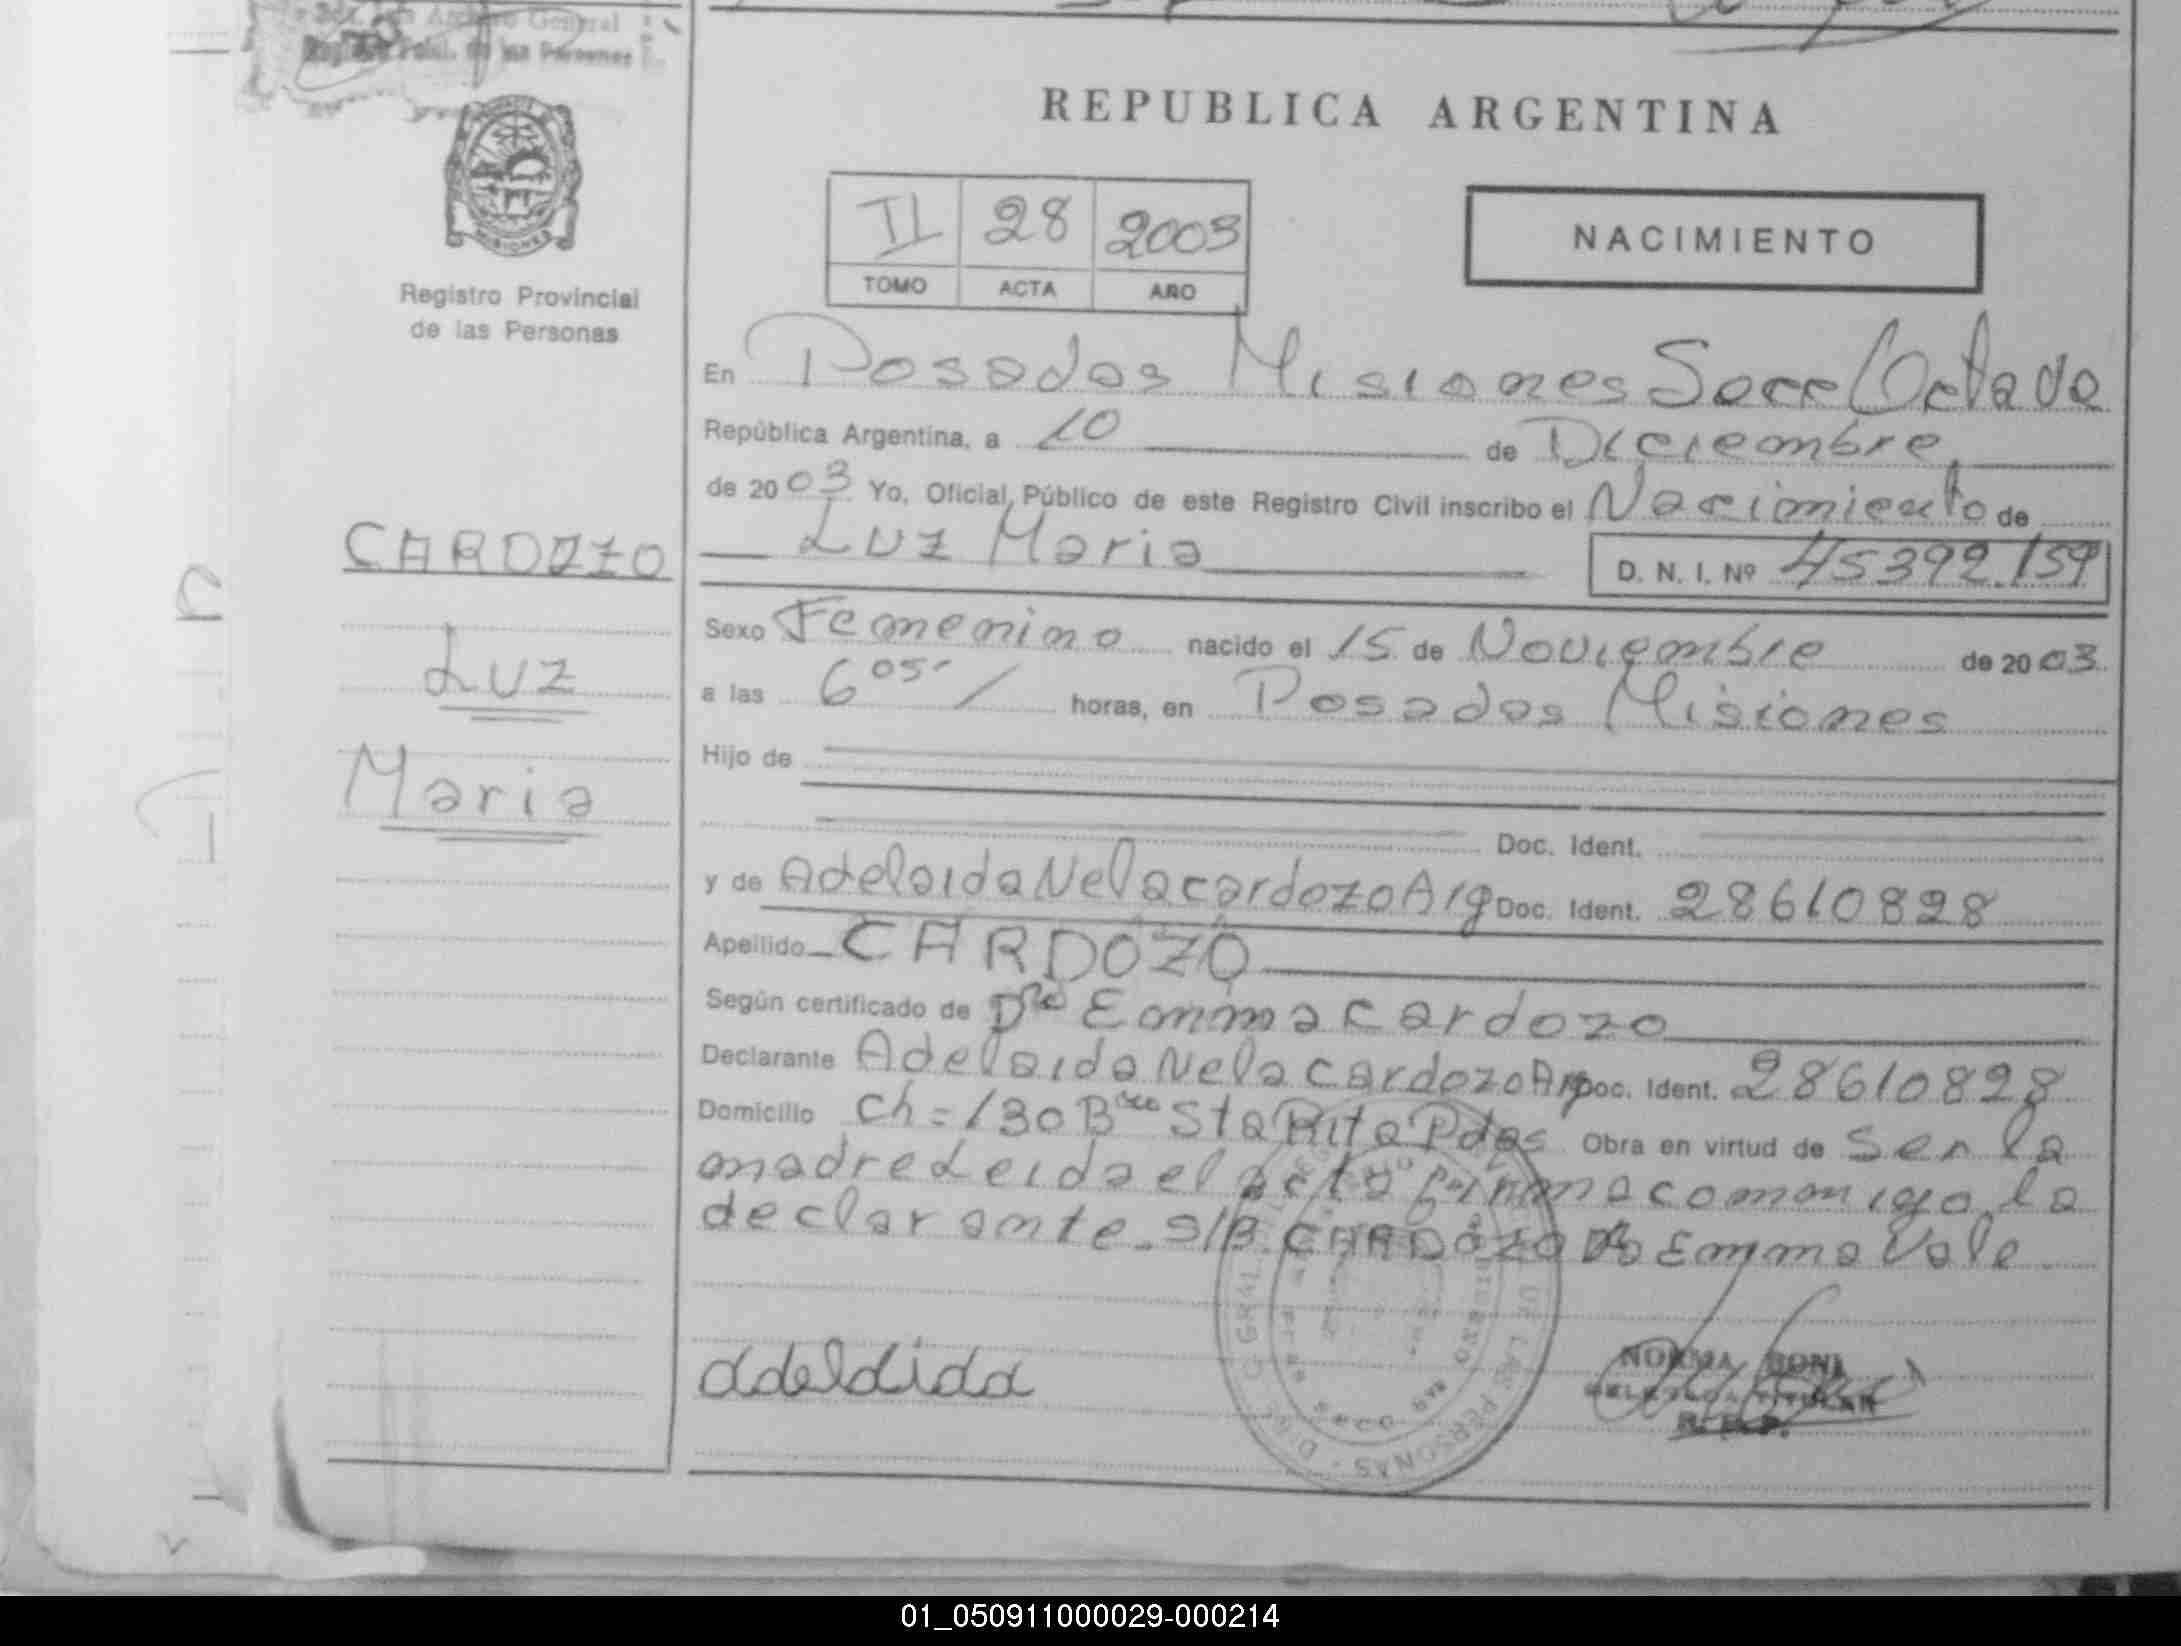 General
de las Personas
REPUBLICA ARGENTINA
MISIONES
Registro Provincial
de las Personas
II 28 2003
TOMO ACTA AÑO
NACIMIENTO
En Posadas Misiones Secc Octava
República Argentina, a 10 de Diciembre
de 2003 Yo, Oficial Público de este Registro Civil inscribo el Nacimiento de
Luz Maria D. N. I. Nº 45392.159
CARDOZO
Luz
Maria
Sexo Femenino nacido el 15 de Noviembre de 2003
a las 6 05 horas, en Posadas Misiones
Hijo de
Doc. Ident.
y de Adelaida Nela cardozo Arg Doc. Ident. 28610828
Apellido CARDOZO
Según certificado de Dra Emma Cardozo
Declarante Adelaida Nela cardozo Arg Doc. Ident. 28610828
Domicilio Ch=130 Sta Rita Pdas Obra en virtud de Ser la
madre Leida el acta firma conmigo la
declarante. S/B. CARDOZO Emma Vale
adelaida
DE LAS PERSONAS
NORMA BONI
TITULAR
01_050911000029-000214